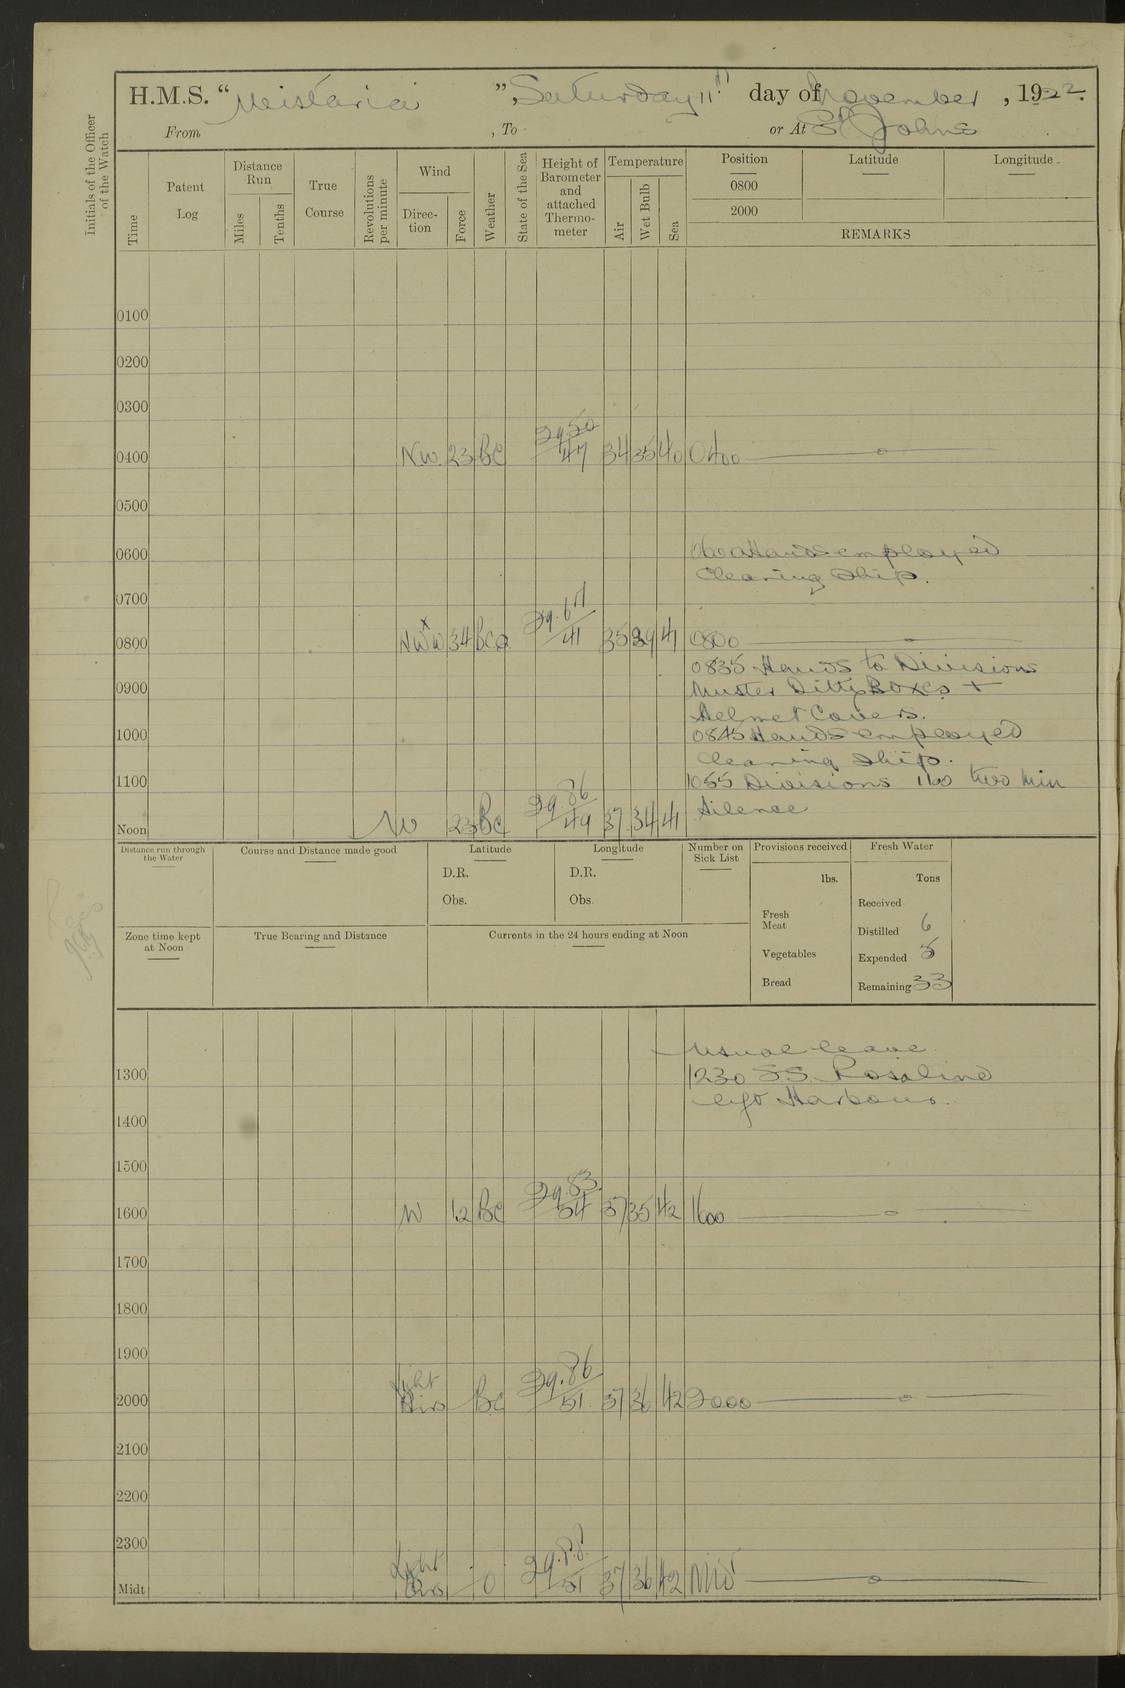 H.M.S. “Wistaria”, Saturday 11th day of November, 1922.
From , To or At St Johns
Initials of the Officer of the Watch
Time
Patent Log
Distance Run
Miles
Tenths
True Course
Revolutions per minute
Wind
Direc-tion
Force
Weather
State of the Sea
Height of Barometer and attached Thermo-meter
Temperature
Air
Wet Bulb
Sea
Position
0800
2000
Latitude
Longitude
REMARKS
0100
0200
0300
0400 NW 23 BC 29.50/47 34 35 40 0400
0500
0600 0600 Hands employed
Cleaning Ship.
0700
0800 34 29.67/41 35 41 0800
0835 Hands to Divisions
0900 Muster Ditty Boxes +
Helmet Covers.
1000 0845 Hands employed
Cleaning Ship.
1100 1055 Divisions 1100 two min
Silence
Noon W 23 BC 29.86/49 37 34 41
Distance run through the Water
Course and Distance made good
Latitude
D.R.
Obs.
Longitude
D.R.
Obs.
Number on Sick List
Provisions received
lbs.
Fresh Meat
Vegetables
Bread
Fresh Water
Tons
Received
Distilled 6
Expended 5
Remaining 33
Zone time kept at Noon
True Bearing and Distance
Currents in the 24 hours ending at Noon
Usual leave
1300 1230 SS Rosalind
left Harbour.
1400
1500
1600 W 12 BC 29.83/54 37 35 42 1600
1700
1800
1900
2000 Light Airs BC 29.86/51 37 36 42 2000
2100
2200
2300
Midt Light Airs 0 29.88/51 37 36 42 Mid